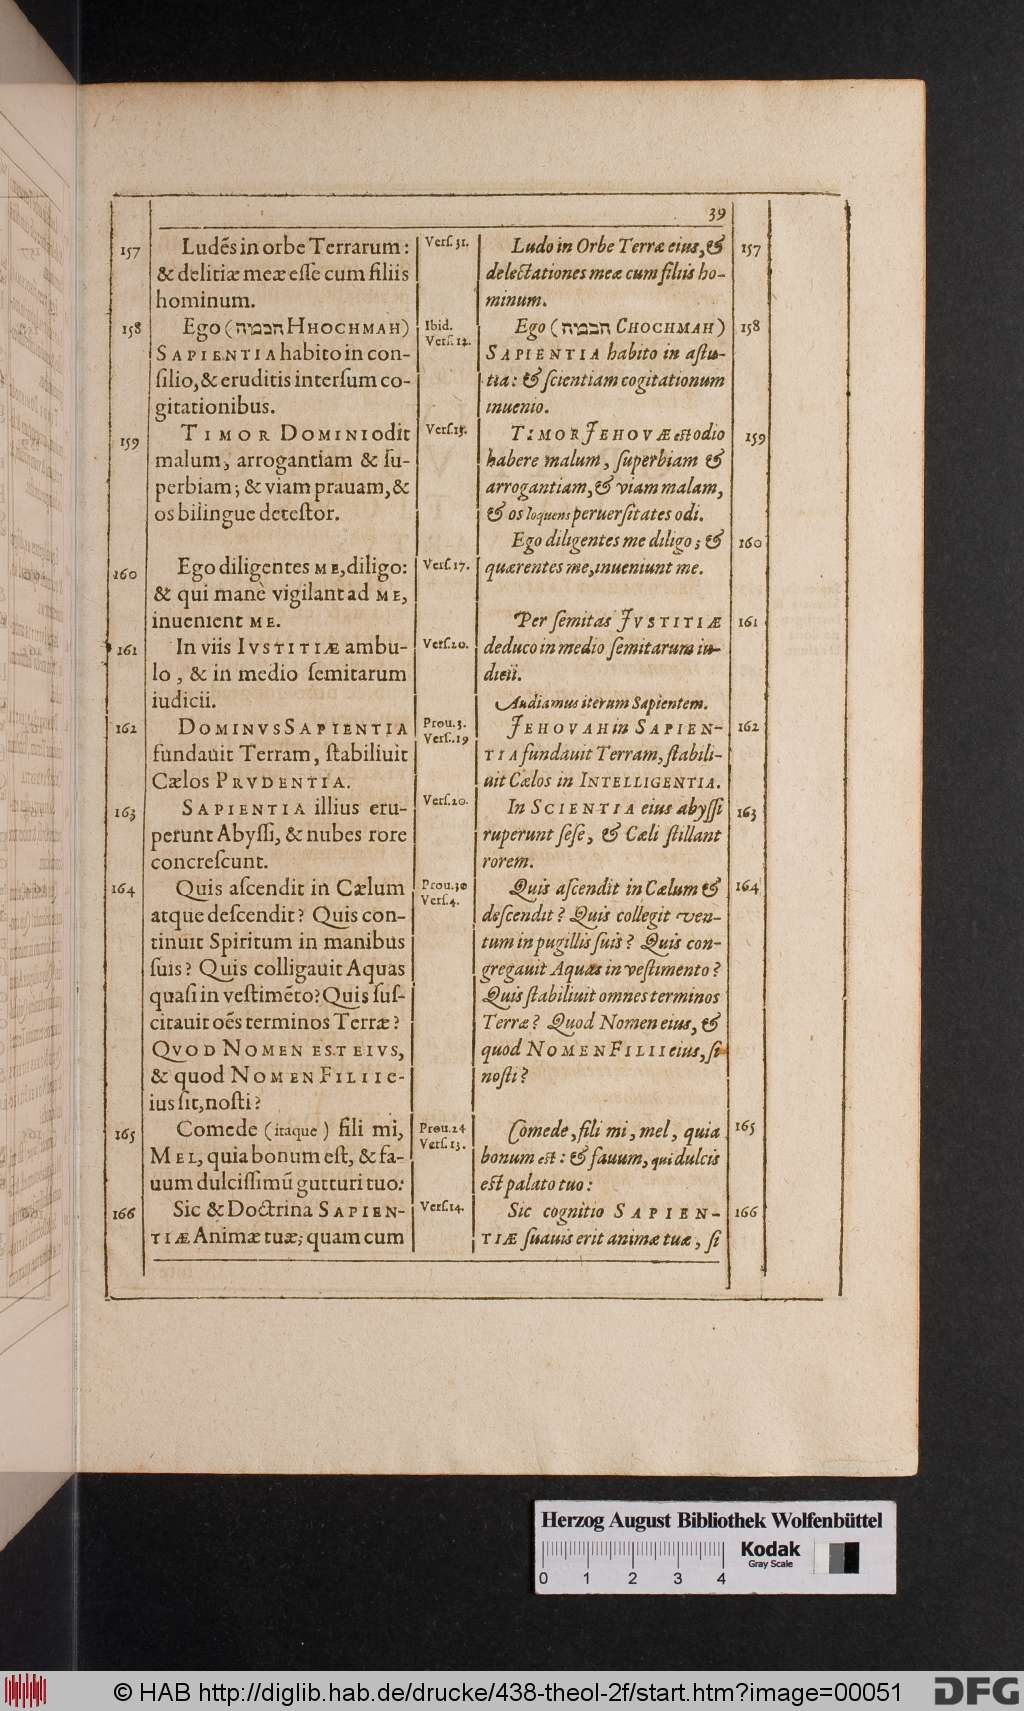 39
157
Ludẽs in orbe Terrarum:
& delitiæ meæ eſſe cum filiis
hominum.
158
Ego (חכמיה HHOCHMAH)
SAPIENTIA habito in con-
ſilio, & eruditis interſum co-
gitationibus.
159
TIMOR DOMINI odit
malum, arrogantiam & ſu-
perbiam; & viam prauam, &
os bilingue deteſtor.
160
Ego diligentes ME, diligo:
& qui manè vigilant ad ME,
inuenient ME.
161
In viis IVSTITIÆ ambu-
lo, & in medio ſemitarum
iudicii.
162
DOMINVS SAPIENTIA
fundauit Terram, ſtabiliuit
Cælos PRVDENTIA.
163
SAPIENTIA illius eru-
perunt Abyſſi, & nubes rore
concreſcunt.
164
Quis aſcendit in Cælum
atque deſcendit? Quis con-
tinuit Spiritum in manibus
ſuis? Quis colligauit Aquas
quaſi in veſtimẽto? Quis ſuſ-
citauit oẽs terminos Terræ?
QVOD NOMEN EST EIVS,
& quod NOMEN FILII e-
ius ſit, noſti?
165
Comede (itaque) fili mi,
MEL, quia bonum eſt, & fa-
uum dulciſſimũ gutturi tuo:
166
Sic & Doctrina SAPIEN-
TIÆ Animæ tuæ; quam cum
Verſ. 31.
Ibid.
Verſ. 12.
Verſ. 13.
Verſ. 17.
Verſ. 20.
Prou. 3.
Verſ. 19
Verſ. 20.
Prou. 30
Verſ. 4.
Prou. 24
Verſ. 13.
Verſ. 14.
Ludo in Orbe Terræ eius, &
delectationes meæ cum filiis ho-
minum.
157
Ego (חכמיה CHOCHMAH)
SAPIENTIA habito in aſtu-
tia: & ſcientiam cogitationum
inuenio.
158
TIMOR JEHOVÆ est odio
habere malum, ſuperbiam &
arrogantiam, & viam malam,
& os loquens peruerſitates odi.
159
Ego diligentes me diligo; &
quærentes me, inueniunt me.
160
Per ſemitas JVSTITIÆ
deduco in medio ſemitarum iu-
dicii.
161
Audiamus iterum Sapientem.
JEHOVAH in SAPIEN-
TIA fundauit Terram, ſtabili-
uit Cælos in INTELLIGENTIA.
162
In SCIENTIA eius abyſſi
ruperunt ſeſe, & Cæli ſtillant
rorem.
163
Quis aſcendit in Cælum &
deſcendit? Quis collegit ven-
tum in pugillis ſuis? Quis con-
gregauit Aquas in veſtimento?
Quis ſtabiliuit omnes terminos
Terræ? Quod Nomen eius, &
quod NOMEN FILII eius, ſi
noſti?
164
Comede, fili mi, mel, quia
bonum est: & fauum, qui dulcis
est palato tuo:
165
Sic cognitio SAPIEN-
TIÆ ſuauis erit animæ tuæ, ſi
166
Herzog August Bibliothek Wolfenbüttel
Kodak
Gray Scale
0 1 2 3 4
© HAB http://diglib.hab.de/drucke/438-theol-2f/start.htm?image=00051
DFG